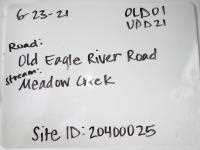 6-23-21
OLD01
UDD21
Road:
Old Eagle River Road
stream:
Meadow Creek
Site ID: 20400025